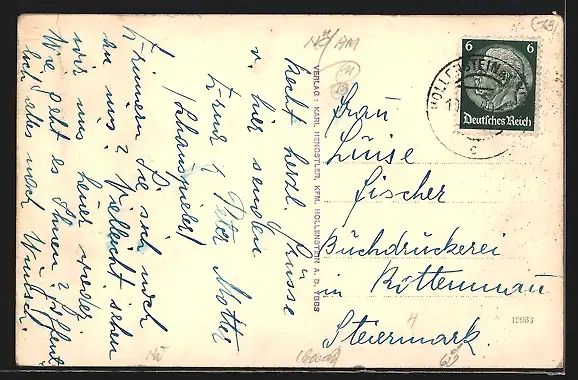 Recht herzl. Grüsse
v. hier senden
Erna & Peter Motter
(Schauspieler)
Erinnern Sie sich noch
an uns? Vielleicht sehen
wir uns heuer wieder.
Wie geht es Ihnen? Hoffentl.
alles nach Wunsch.
VERLAG: KARL HENGSTLER, KFM. HOLLENSTEIN A. D. YBBS
Frau
Luise
Fischer
Buchdruckerei
in Rottenmann
Steiermark.
6 6
Deutsches Reich
HOLLENSTEIN
c